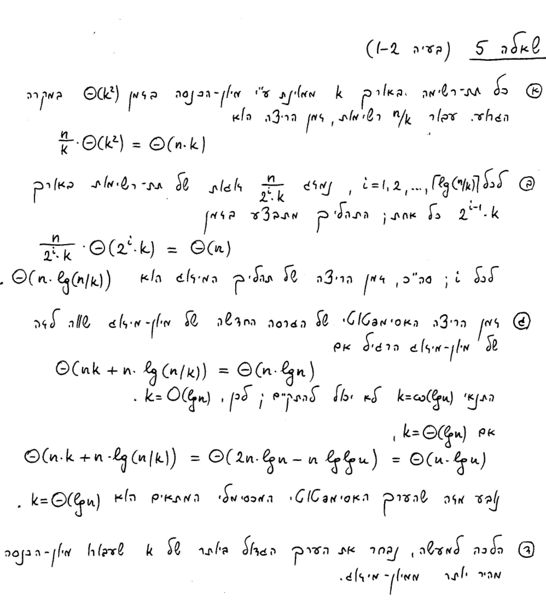 שאלה 5 (בעיה 1-2)
א כל תת-רשימה באורך k ממוינת ע"י מיון-הכנסה בזמן Θ(k²) במקרה
הגרוע. עבור n/k רשימות, זמן הריצה הוא
n/k · Θ(k²) = Θ(n·k)
ב לכל i = 1, 2, ..., ⌈lg(n/k)⌉, נמזג n/(2^i·k) זוגות של תת-רשימות באורך
2^(i-1)·k כל אחת; התהליך מתבצע בזמן
n/(2^i·k) · Θ(2^i·k) = Θ(n)
לכל i; סה"כ, זמן הריצה של תהליך המיזוג הוא Θ(n·lg(n/k)).
ג זמן הריצה האסימפטוטי של הגרסה החדשה של מיון-מיזוג שווה לזה
של מיון-מיזוג הרגיל אם
Θ(nk + n·lg(n/k)) = Θ(n·lgn)
התנאי k=ω(lgn) לא יכול להתקיים; לכן, k=O(lgn).
אם k=Θ(lgn),
Θ(n·k + n·lg(n/k)) = Θ(2n·lgn - n lglgn) = Θ(n·lgn)
נובע מזה שהערך האסימפטוטי המכסימלי המתאים הוא k=Θ(lgn).
ד הלכה למעשה, נבחר את הערך הגדול ביותר של k שעבורו מיון-הכנסה
מהיר יותר ממיון-מיזוג.